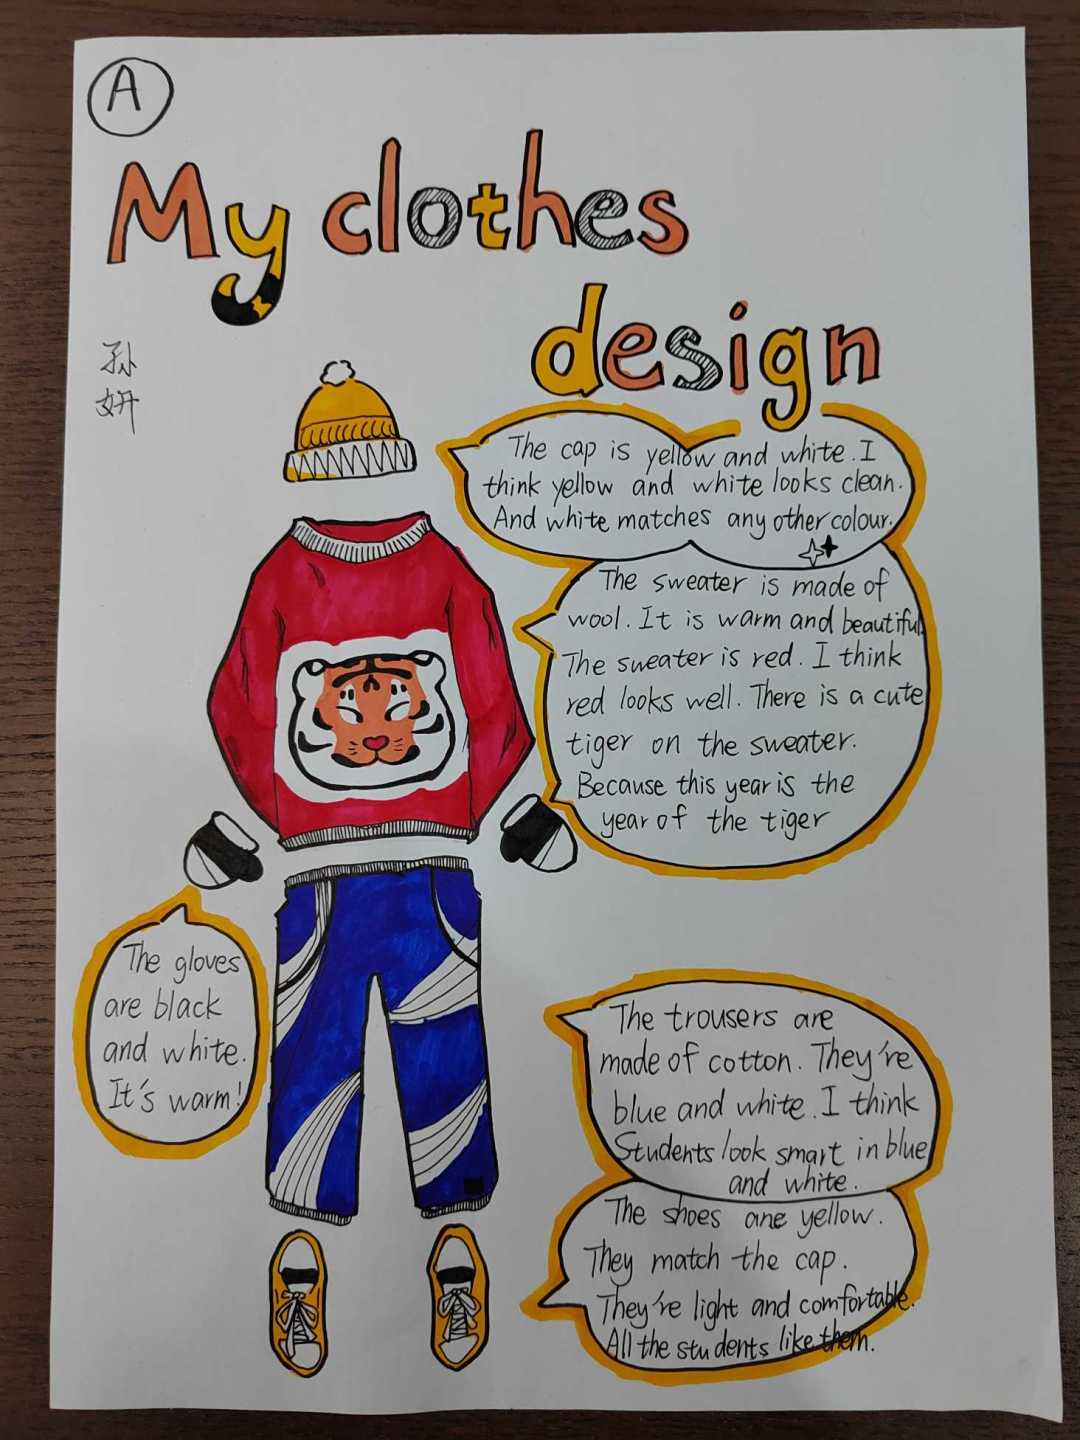 A
My clothes
design
孙
妍
The cap is yellow and white. I
think yellow and white looks clean.
And white matches any other colour.
The sweater is made of
wool. It is warm and beautiful.
The sweater is red. I think
red looks well. There is a cute
tiger on the sweater.
Because this year is the
year of the tiger
The gloves
are black
and white.
It's warm!
The trousers are
made of cotton. They're
blue and white. I think
Students look smart in blue
and white.
The shoes are yellow.
They match the cap.
They're light and comfortable.
All the students like them.